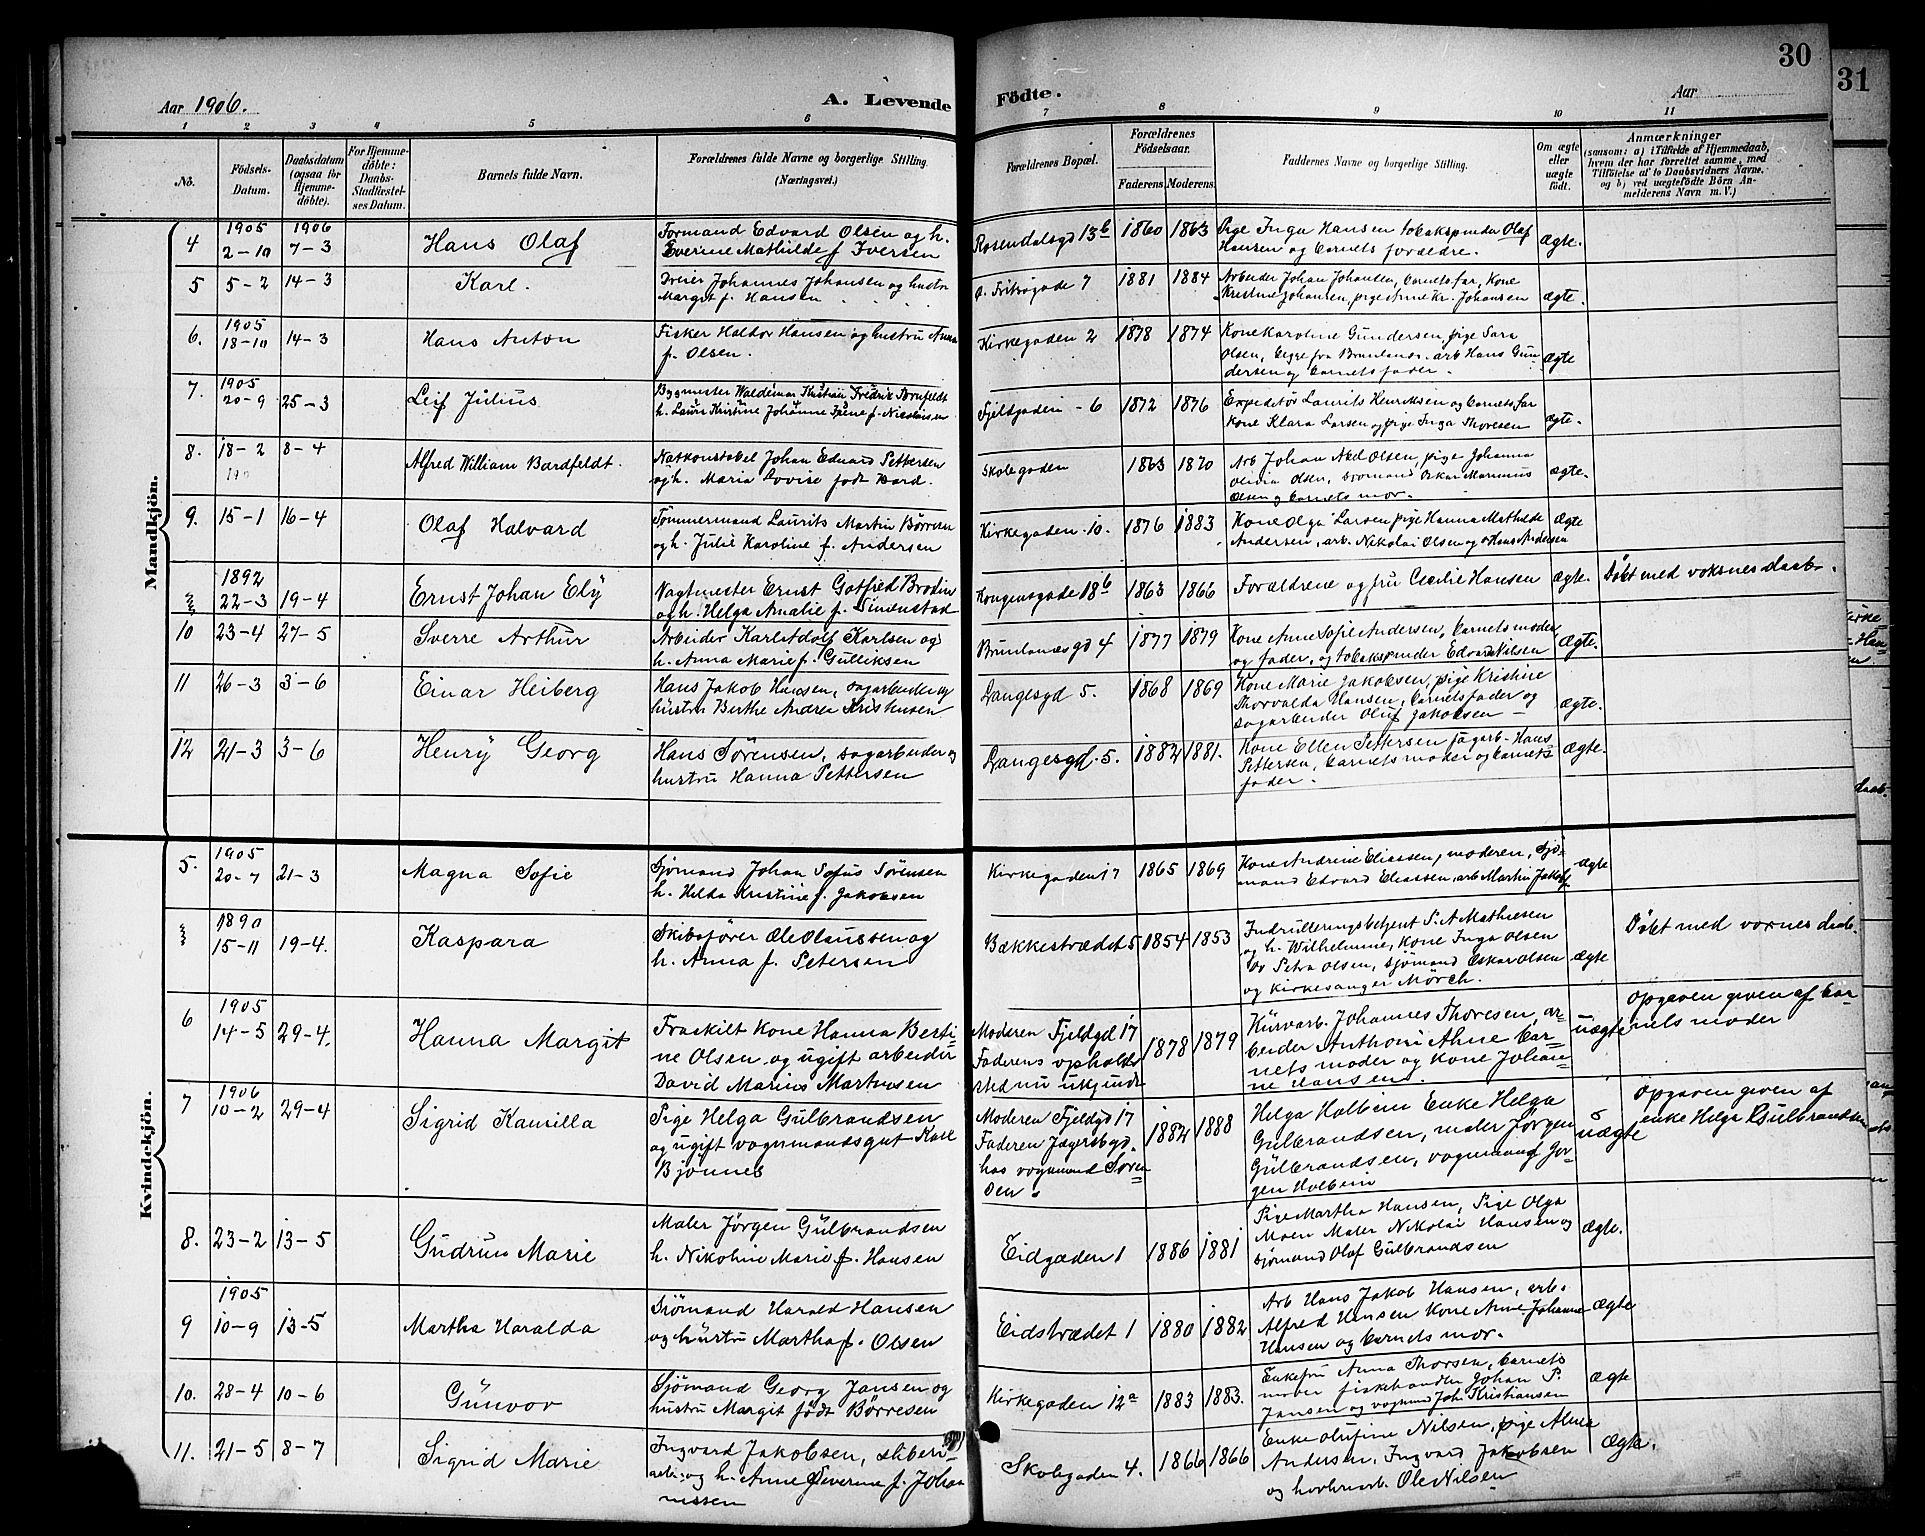 30
31
Aar 1906.
A. Levende Födte.
Aar
1 2 3 4 5 6 7 8 9 10 11
No.
Födsels-Datum.
Daabsdatum (ogsaa for Hjemme-döbte).
For Hjemme-döbte: Daabs-Stadfæstel-ses Datum.
Barnets fulde Navn.
Forældrenes fulde Navne og borgerlige Stilling. (Næringsvei.)
Forældrenes Bopæl.
Forældrenes Födselsaar.
Faderens. Moderens.
Faddernes Navne og borgerlige Stilling.
Om ægte eller uægte födt.
Anmærkninger
(saasom: a) i Tilfælde af Hjemmedaab, hvem der har forrettet samme, med Tilföielse af to Daabsvidners Navne, og b) ved uægtefödte Börn An-melderens Navn m. V.)
Mandkjön.
4 1905 2-10 1906 7-3 Hans Olaf Formand Edvard Olsen og h.
Severine Mathilde f Iversen Rosendalsgd 13b 1860 1863 Pige Inga Hansen tobakspinder Olaf
Hansen og barnets forældre. ægte.
5 5-2 14-3 Karl. Dreier Johannes Johansen og hustru
Margit f. Hansen Fritzøgade 7 1881 1884 Arbeider Johan Johansen, barnets far, Kone
Kristine Johansen, pige Anne Kr. Johansen ægte.
6. 1905 18-10 14-3 Hans Anton Fisker Haldor Hansen og hustru Anna
f. Olsen. Kirkegaden 2 1878 1874 Kone Karoline Gundersen, pige Sara
Olsen, begge fra Brunlanæs, arb Hans Gun
dersen og barnets fader. ægte
7. 1905 20-9 25-3 Leif Julius Bygmester Waldemar Kristian Fredrik
h. Laura Kristine Johanne Irene f. Nicolaisen Fjeldgaden - 6 1872 1876 Expeditør Laurits Henriksen og barnets far
Kone Klara Larsen og pige Inga Thoresen ægte.
8. 18-2 8-4 Alfred William Bardfeldt. Natkonstabel Johan Edvard Pettersen
og h. Maria Lovise født Bard. Skolegaden 1863 1870 Arb Johan Olsen, pige Johanna
Olivia Olsen, sjømand Oskar Marinius
Olsen og barnets mor. ægte.
9. 15-1 16-4 Olaf Halvard Tømmermand Laurits Martin Børresen
og h. Julie Karoline f. Andersen Kirkegaden 10. 1876 1883 Kone Olga Larsen pige Hanna Mathilde
Andersen, arb. Nikolai Olsen og Hans Andersen ægte
1892 22-3 19-4 Ernst Johan Elÿ Vagtmester Ernst Gotfred Brodin
og h. Helga Amalie f. Simenstad Kongensgade 18b 1863 1866 Forældrene og fru Cecilie Hansen ægte. Døbt med voksnes daab.
10 23-4 27-5 Sverre Arthur Arbeider Karl Adolf Karlsen og
h. Anna Marie f. Gulliksen Brunlanæsgd 4 1877 1879 Kone Anne Sofie Andersen, barnets moder
og fader, og tobakspinder Edvard Nilsen ægte.
11 26-3 3-6 Einar Heiberg Hans Jakob Hansen, sagarbeider og
hustru Berthe Andrea Kristensen Langesgd 5. 1868 1869 Kone Marie Jakobsen, pige Kristine
Thorvalda Hansen, barnets fader og
sagarbeider Oluf Jakobsen ægte.
12 21-3 3-6 Henrÿ Georg Hans Sørensen, sagarbeider og
hustru Hanna Pettersen Langesgd. 5. 1882 1881. Kone Ellen Pettersen sagarb. Hans
Pettersen, barnets moder og barnets
fader. ægte.
Kvindekjön.
5. 1905 20-7 21-3 Magna Sofie Sjømand Johan Sofus Sørensen
h. Hilda Kristine f. Jakobsen Kirkegaden 17 1865 1869 Kone Andrine Eliassen, moderen, sjø-
mand Edvard Eliassen, arb Martin Jakobs. ægte
1890 15-11 19-4. Kaspara Skibsfører Ole Olaussen og
h. Anna f. Petersen Bækkestrædet 5 1854 1853 Indrulleringsbetjent P. A Mathiesen
og h. Wilhelmine, Kone Inga Olsen
Petra Olsen, sjømand Oskar Olsen
og kirkesanger Mörch. ægte Døbt med voxnes daab.
6 1905 14-5 29-4. Hanna Margit Fraskilt Kone Hanna Berti-
ne Olsen og ugift arbeider
David Marius Martinsen Moderen Fjeldgd 17
Faderens opholds
sted nu ukjendt 1878 1879 Kurvarb. Johannes Thoresen, ar-
beider Anthon Ahne bar-
nets moder og Kone Johan-
ne Hansen. uægte Opgaven given af bar-
nets moder
7 1906 10-2 29-4 Sigrid Kamilla Pige Helga Gulbrandsen
og ugift vognmandsgut Karl
Bjønnes Moderen Fjeldgd 17
Faderen Jagersbgd.
hos vognmand Søren
sen. 1882 1888 Helga Holbein Enke Helga
Gulbrandsen, maler Jørgen
Gülbrandsen, vognmand Jør-
gen Holbein uægte Opgaven given af
enke Helga Gulbrandsen
8. 23-2 13-5 Gudrun Marie Maler Jörgen Gülbrandsen
h. Nikoline Marie f. Hansen Eidgaden 1 1886 1881 Pige Martha Hansen, Pige Olga
Moen Maler Nikolai Hansen og
sjømand Olaf Gülbrandsen ægte.
9 1905 10-9 13-5 Martha Haralda Sjømand Harald Hansen
og hustru Martha f. Olsen Eidstrædet 1 1880 1882 Arb Hans Jakob Hansen, arb.
Alfred Hansen Kone Anne Johanne
Hansen og barnets mor. ægte
10. 28-4 10-6 Günvor Sjømand Georg Jansen og
hustru Margit født Børresen Kirkegaden 12a 1883 1883. Enkefru Anna Thorsen, barnets
moder fiskehandler Johan P.
Jansen og vognmd Joh. Kristiansen ægte
11. 21-5 8-7 Sigrid Marie Ingvard Jakobsen, sliberi-
arb. og h. Anne Severine f. Johan
nessen Skolegaden 4. 1866 1866 Enke Olufine Nilsen, pige Alma
Andersen, Ingvard Jakobsen
og høvleriarb. Ole Nilsen ægte.